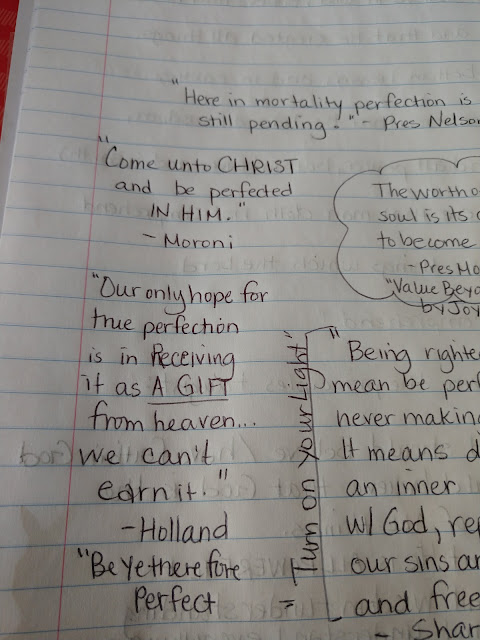 "Here in mortality perfection is
still pending." - Pres Nelso
"Come unto CHRIST
and be perfected
IN HIM."
- Moroni
The worth o
soul is its c
to become
- Pres Mo
"Value Beyo
by Joy
"Our only hope for
true perfection
is in Receiving
it as A GIFT
from heaven...
we can't
earn it."
- Holland
"Be Ye therefore
Perfect
"Turn on Your Light"
"Being righte
mean be perf
never makin
It means d
an inner
w/ God, rep
our sins an
and free
- Shar